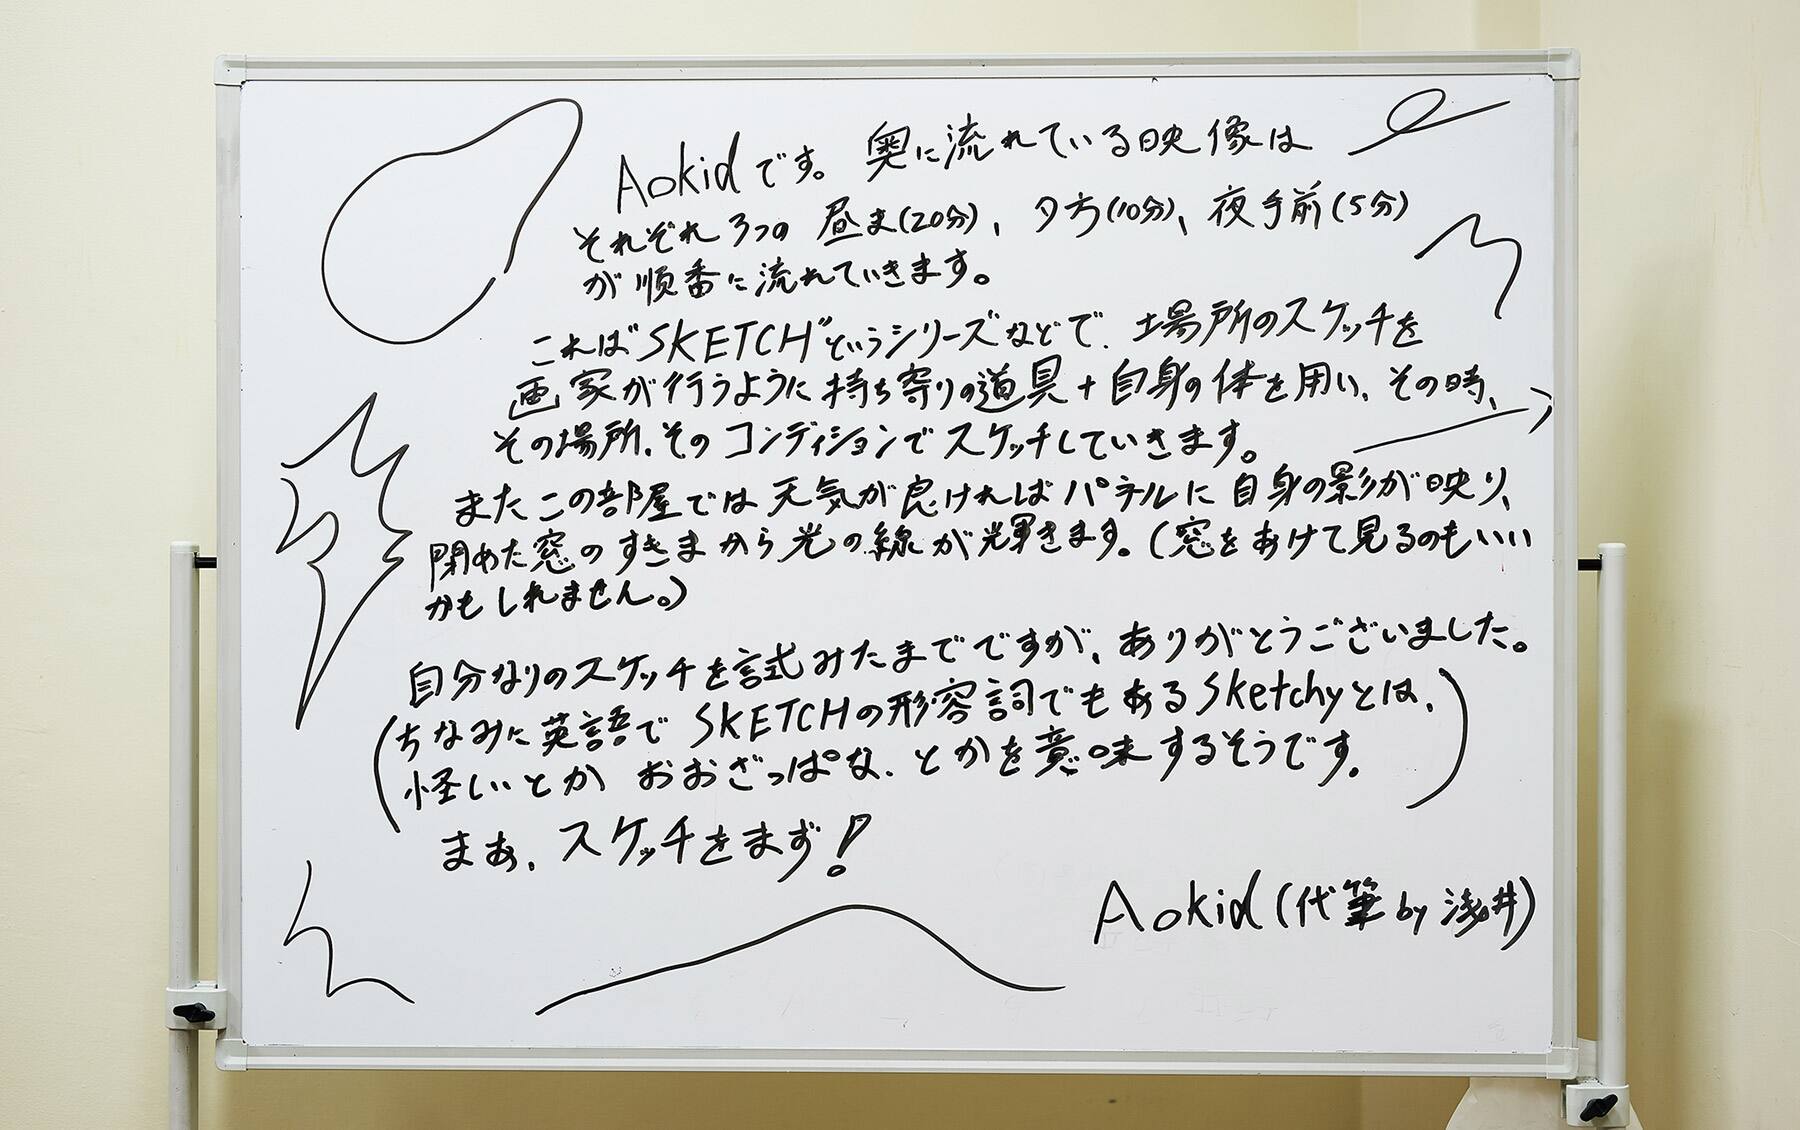 Aokidです。奥に流れている映像は
それぞれ3つの 昼ま(20分)、夕方(10分)、夜手前(5分)
が順番に流れていきます。
これは"SKETCH"というシリーズなどで、場所のスケッチを
画家が行うように持ち寄りの道具+自身の体を用い、その時、
その場所、そのコンディションでスケッチしていきます。
またこの部屋では天気が良ければパネルに自身の影が映り、
閉めた窓のすきまから光の線が輝きます。(窓をあけて見るのもいい
かもしれません。)
自分なりのスケッチを試みたまでですが、ありがとうございました。
(ちなみに英語でSKETCHの形容詞でもあるSketchyとは、
怪しいとか おおざっぱな、とかを意味するそうです。)
まあ、スケッチをまず!
Aokid(代筆by浅井)